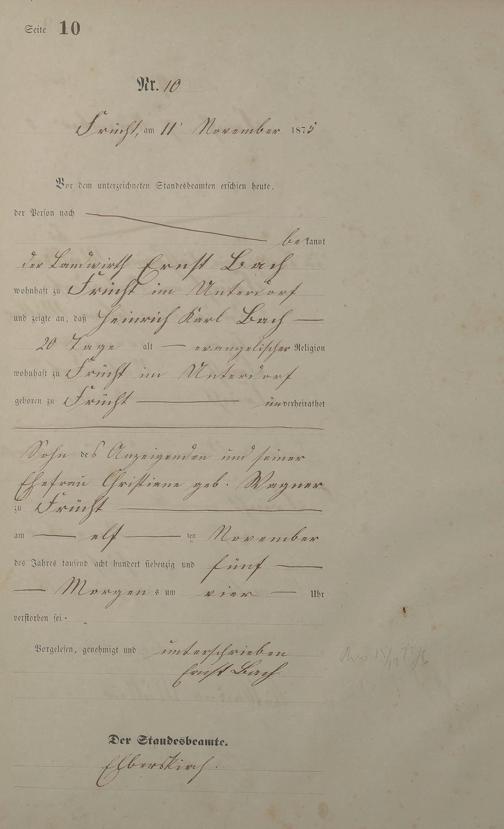 Seite 10
Nr. 10
Frücht, am 11 November 1875
Vor dem unterzeichneten Standesbeamten erschien heute,
der Person nach
bekannt
der Landwirth Ernst Bach
wohnhaft zu Frücht im Unterdorf
und zeigte an, daß Heinrich Karl Bach
20 Tage alt evangelischer Religion
wohnhaft zu Frücht im Unterdorf
geboren zu Frücht unverheirathet
Sohn des Anzeigenden und seiner
Ehefrau Christiane geb. Wagner
zu Frücht
am elf ten November
des Jahres tausend acht hundert siebenzig und fünf
Morgens um vier Uhr
verstorben sei.
Vorgelesen, genehmigt und unterschrieben
Ernst Bach
Der Standesbeamte.